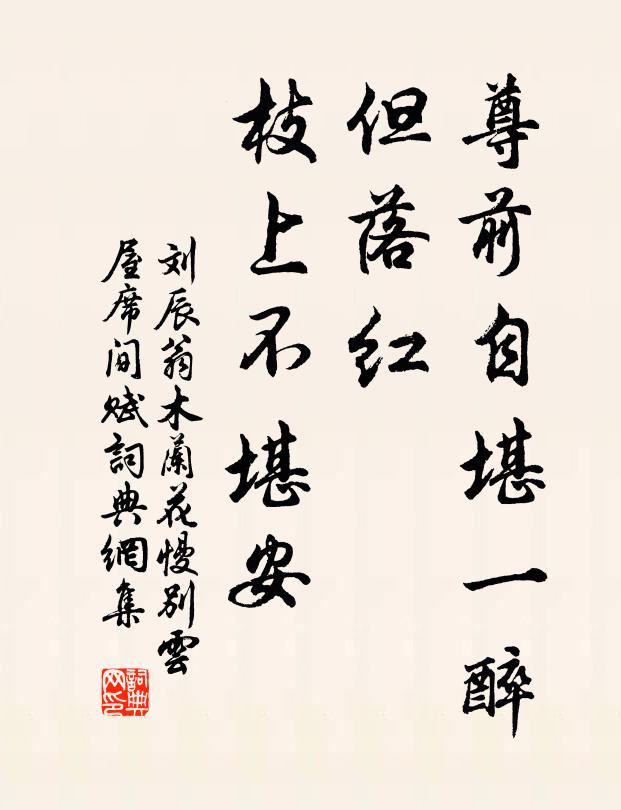 尊前自堪一醉
但落红
枝上不堪安
刘辰翁木蘭花慢别雲
屋席间赋詞典網集
詞典
网印